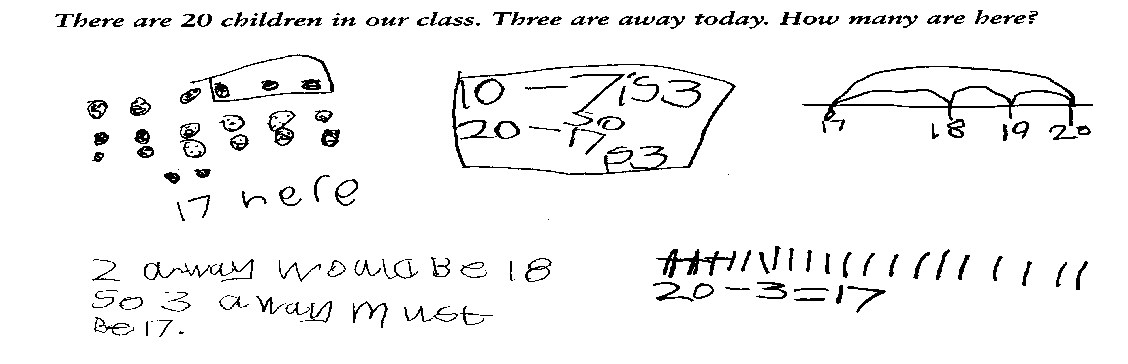 There are 20 children in our class. Three are away today. How many are here?
17 here
10 - 7 is 3
so
20 - 17
is 3
17 18 19 20
2 away would Be 18
So 3 away must
Be 17.
20 - 3 = 17